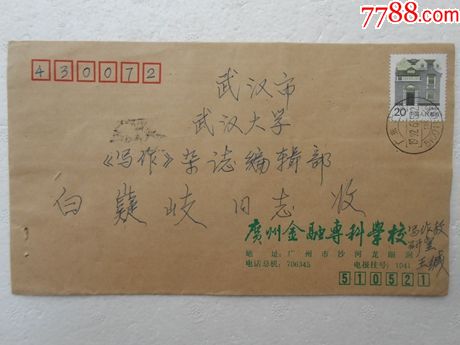 7788.com
430072
武汉市
武汉大学
《写作》杂誌编辑部
白 嶷 岐 同志 收
20 中国人民邮政
廣州金融專科學校 写作教
研室
王缄
地 址：广州市沙河龙眼洞
电话总机：706345 电报挂号：1041
510521